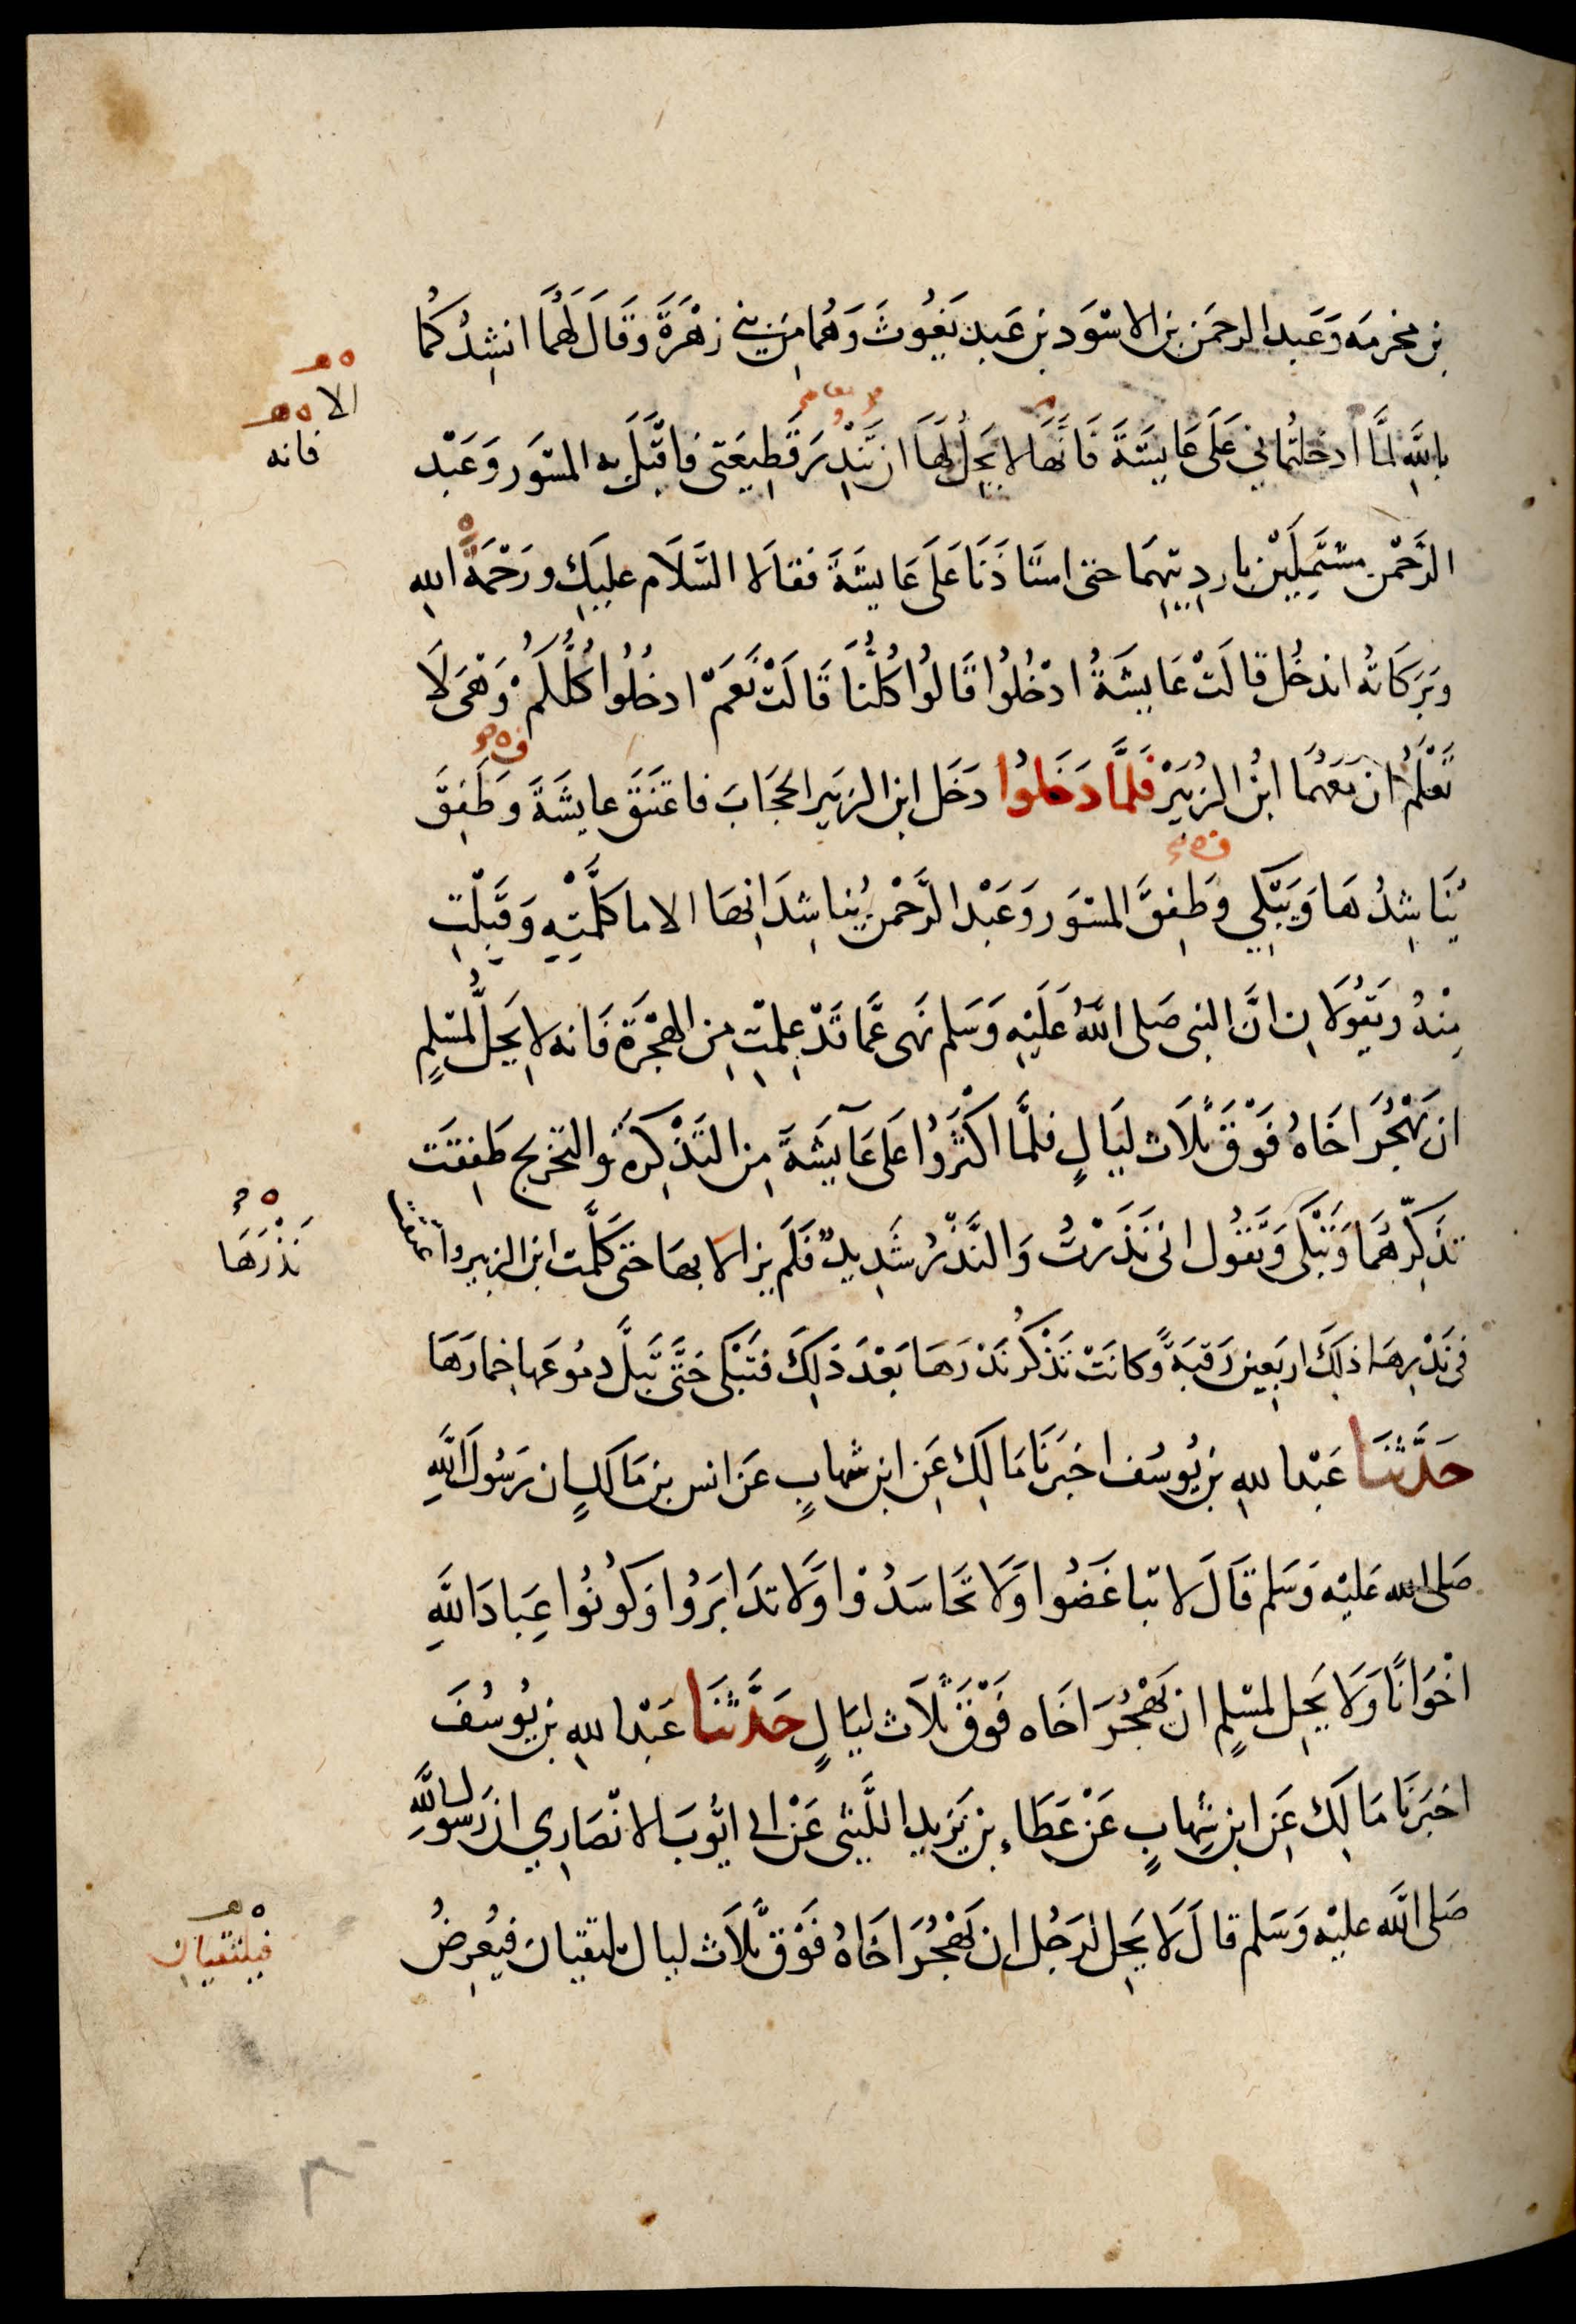 بن مخرمه وَعَبد الرحمَن بن الاسْوَد بن عَبد يَغُوثَ وَهُمَا مِن بني زهْرَةَ وَقَالَ لَهُمَا انشِدُكُمَا
بِاللَّهِ لمَّا ادخلتُماني عَلَى عَايشَةَ فَانَّهَا لا يَحِلُ لَهَا ان تَنْذِرَ قَطِيعَتى فاقبَلَ به المسْوَر وَعَبْد
الرَّحْمن مشتَمِلَيْن باردِيَتِهمَا حتى استَاذَنَا عَلَى عَايشَةَ فقالَا السَّلَام عليكِ ورَحْمَةُ اللهِ
وبَرَكَاتُه اندخُل قالَتْ عَايشَةُ ادْخُلُوا قَالوُا كُلُّنَا قَالَتْ نَعَمْ ادخُلُوا كُلُّكُمْ وَهْىَ لَا
تَعْلَمُ ان مَعَهُمَا ابْنُ الزُبَيْر فَلَمَّا دَخَلوُا دَخَل ابن الزبَير الحجَابَ فاعتَنَقَ عايشَةَ وطَفِقَ
يُنَاشِدُهَا وَيَبْكِي وطَفِقَ المسْوَر وَعَبْد الرَّحْمن يُناشِدَانِهَا الا ما كلَّمتِهِ وَقَبِلْتِ
مِنْهُ وَيَقُولَانِ انَّ النبى صَلى اللَّهُ عَلَيْهِ وَسَلم نَهى عَمَّا قَدْ عِلمْتِ مِن الهِجْرَةِ فَانه لا يَحِلُّ لمسْلِمٍ
ان يَهْجُرَ اخَاهُ فَوْقَ ثَلَاث لَيَالٍ فلمَّا اكْثَرُوا عَلى عَايشَةَ مِن التَذْكِرَة والتحريج طَفِقَت
تذَكِّرُهُمَا وَتَبْكى وَتَقُول انى نَذَرْتُ وَالنَّذْرُ شَدِيدٌ فَلَم يزالا بهَا حتى كَلَّمَت ابن الزبير واعتقت
فى نَذْرِهَا ذلكَ اربَعِين رَقبَةً وكانَتْ تَذْكُر نَذْرَهَا بَعْدَ ذلِكَ فتَبْكى حَتَّى تَبلَّ دمُوعَها خِمارَهَا
حَدَّثنَا عَبْد اللهِ بن يُوسُف اخبَرَنَا مَالِكٌ عَن ابن شهابٍ عَن انس بن مَالكٍ ان رَسُول اللَّهِ
صَلى الله عَليْه وَسَلم قَالَ لا تباغَضُوا وَلَا تحَاسَدُوْا وَلَا تدَابَرُوا وَكُونُوا عِبَادَ اللَّهِ
اخْوَانًا وَلَا يَحِل لمسْلِمٍ ان يَهْجُرَ اخَاه فَوْقَ ثَلَاث ليَالٍ حَدَّثنَا عَبْد اللهِ بن يُوسُفَ
اخبَرَنَا مَالِك عَن ابن شِهابٍ عَنْ عَطَاءِ بن يَزِيد اللَّيثى عَنْ ابى ايُّوبَ الانْصَارِي ان رَسول اللَّهِ
صَلى اللَّه عليْه وَسَلم قالَ لَا يَحِل لرَجُل ان يَهْجُرَ اخَاهُ فَوْقَ ثَلَاث ليال يلتقيان فيُعرِضُ
الا
فانه
نَذْرَهَا
فيلتقيان